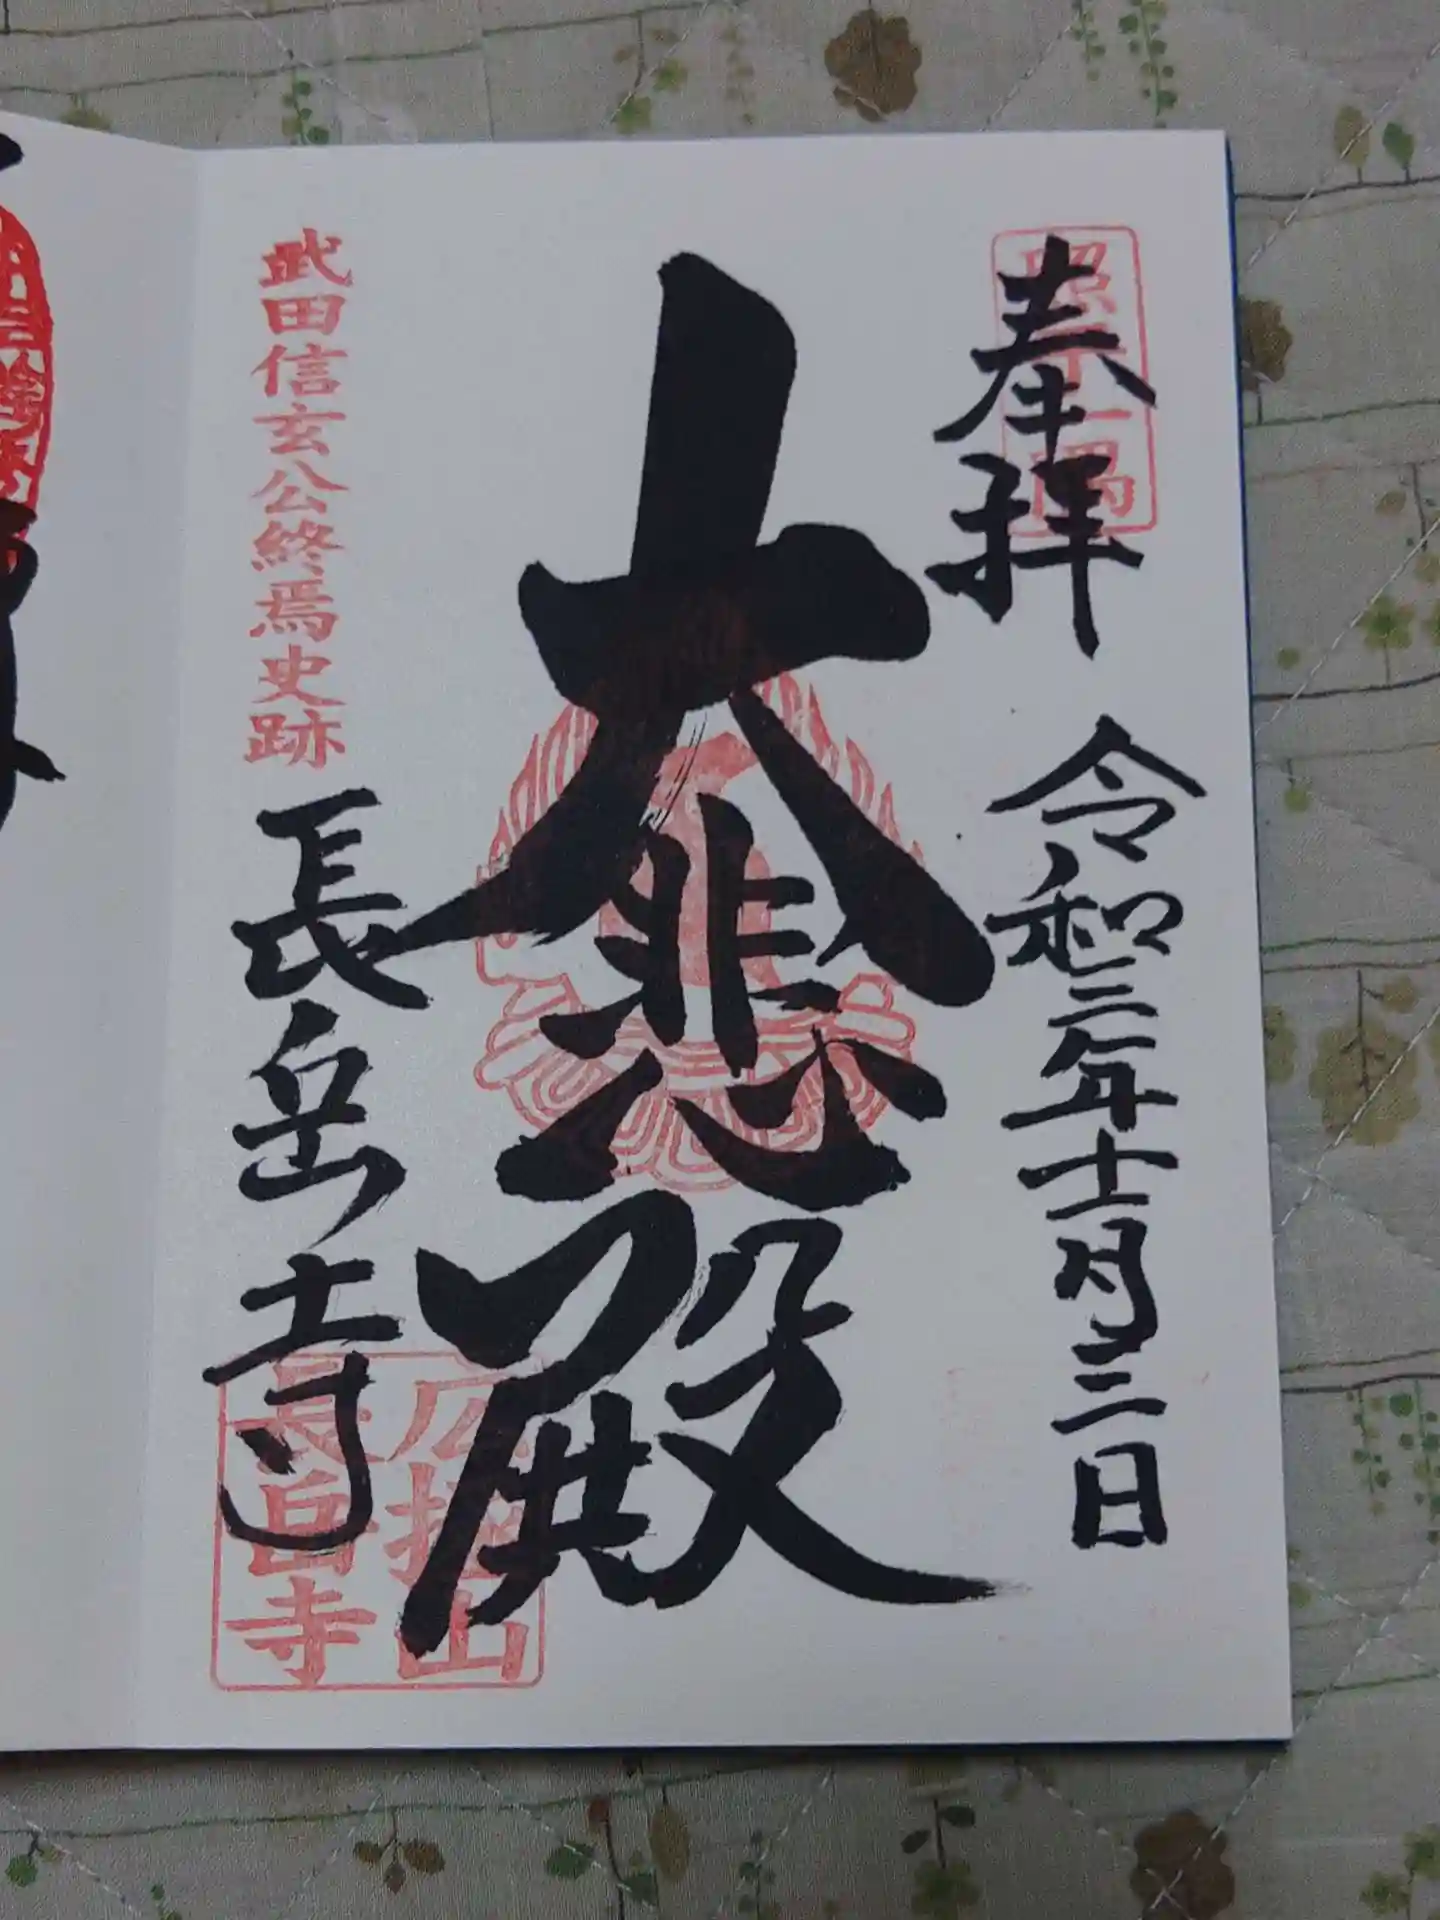 奉拝
令和三年十一月三日
大悲殿
武田信玄公終焉史跡
長岳寺
広拯山
長岳寺